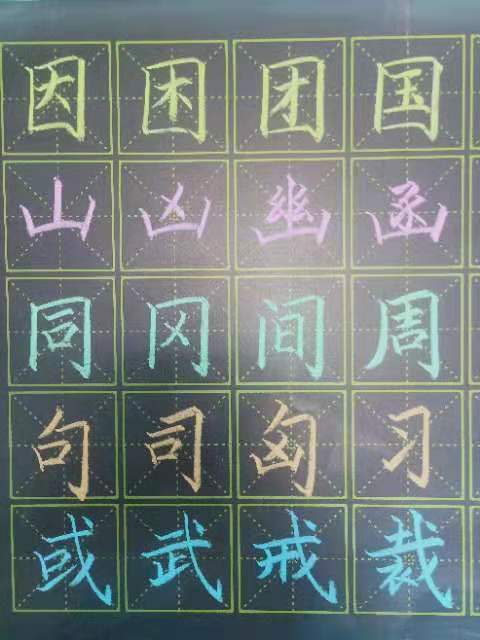 因困团国
山凶幽函
同冈间周
句司匈习
或武戒裁